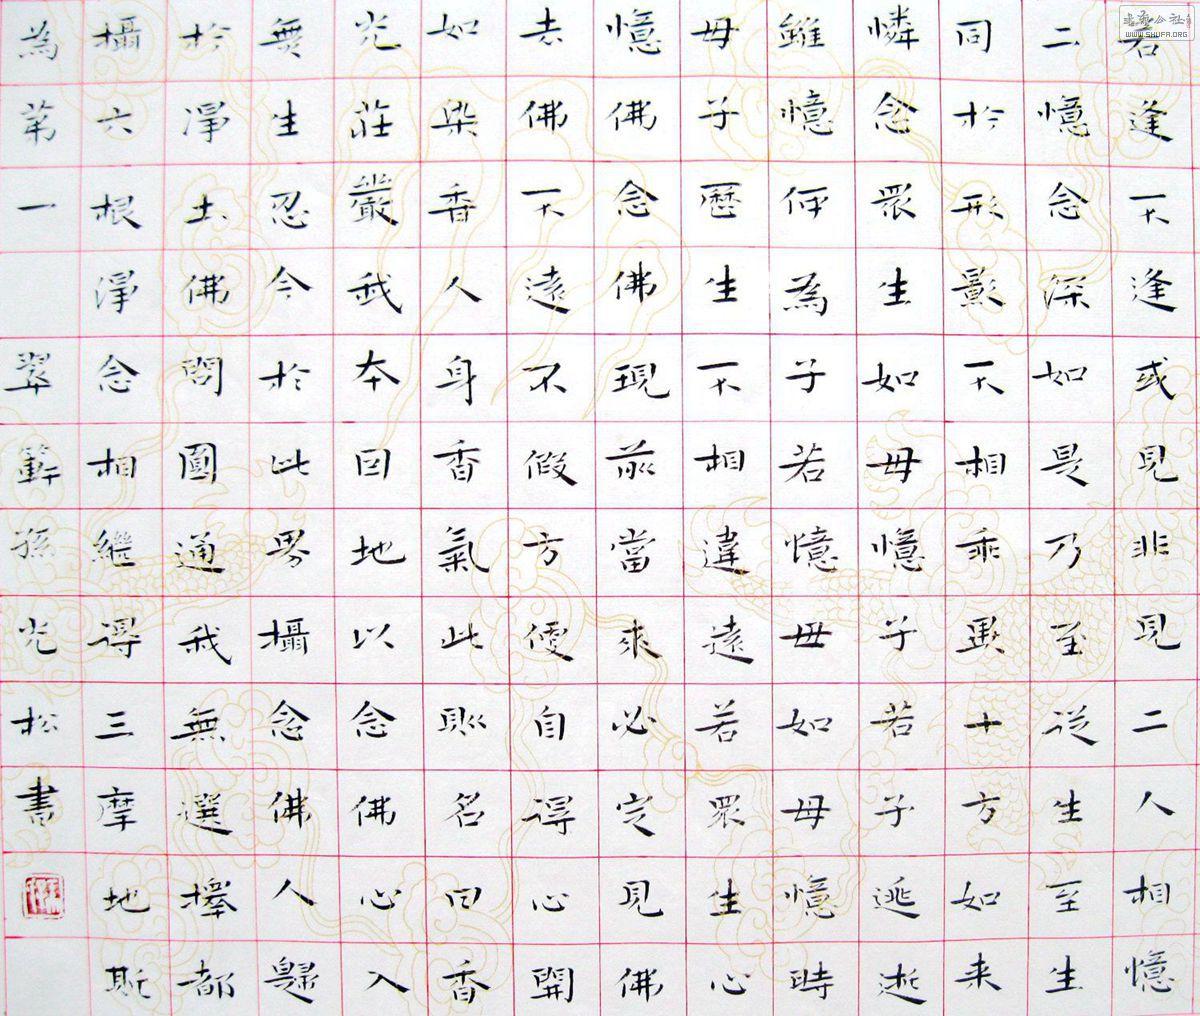 若逢不逢或見非見二人相憶
二憶念深如是乃至從生至生
同於形影不相乖異十方如來
憐念眾生如母憶子若子逃逝
雖憶何為子若憶母如母憶時
母子歷生不相違遠若眾生心
憶佛念佛現前當來必定見佛
去佛不遠不假方便自得心開
如染香人身香氣此則名曰香
光莊嚴我本因地以念佛心入
無生忍今於此界攝念佛人歸
於淨土佛問圓通我無選擇都
攝六根淨念相繼得三摩地斯
為第一 翠 孫光松書
WWW.SHUFA.ORG